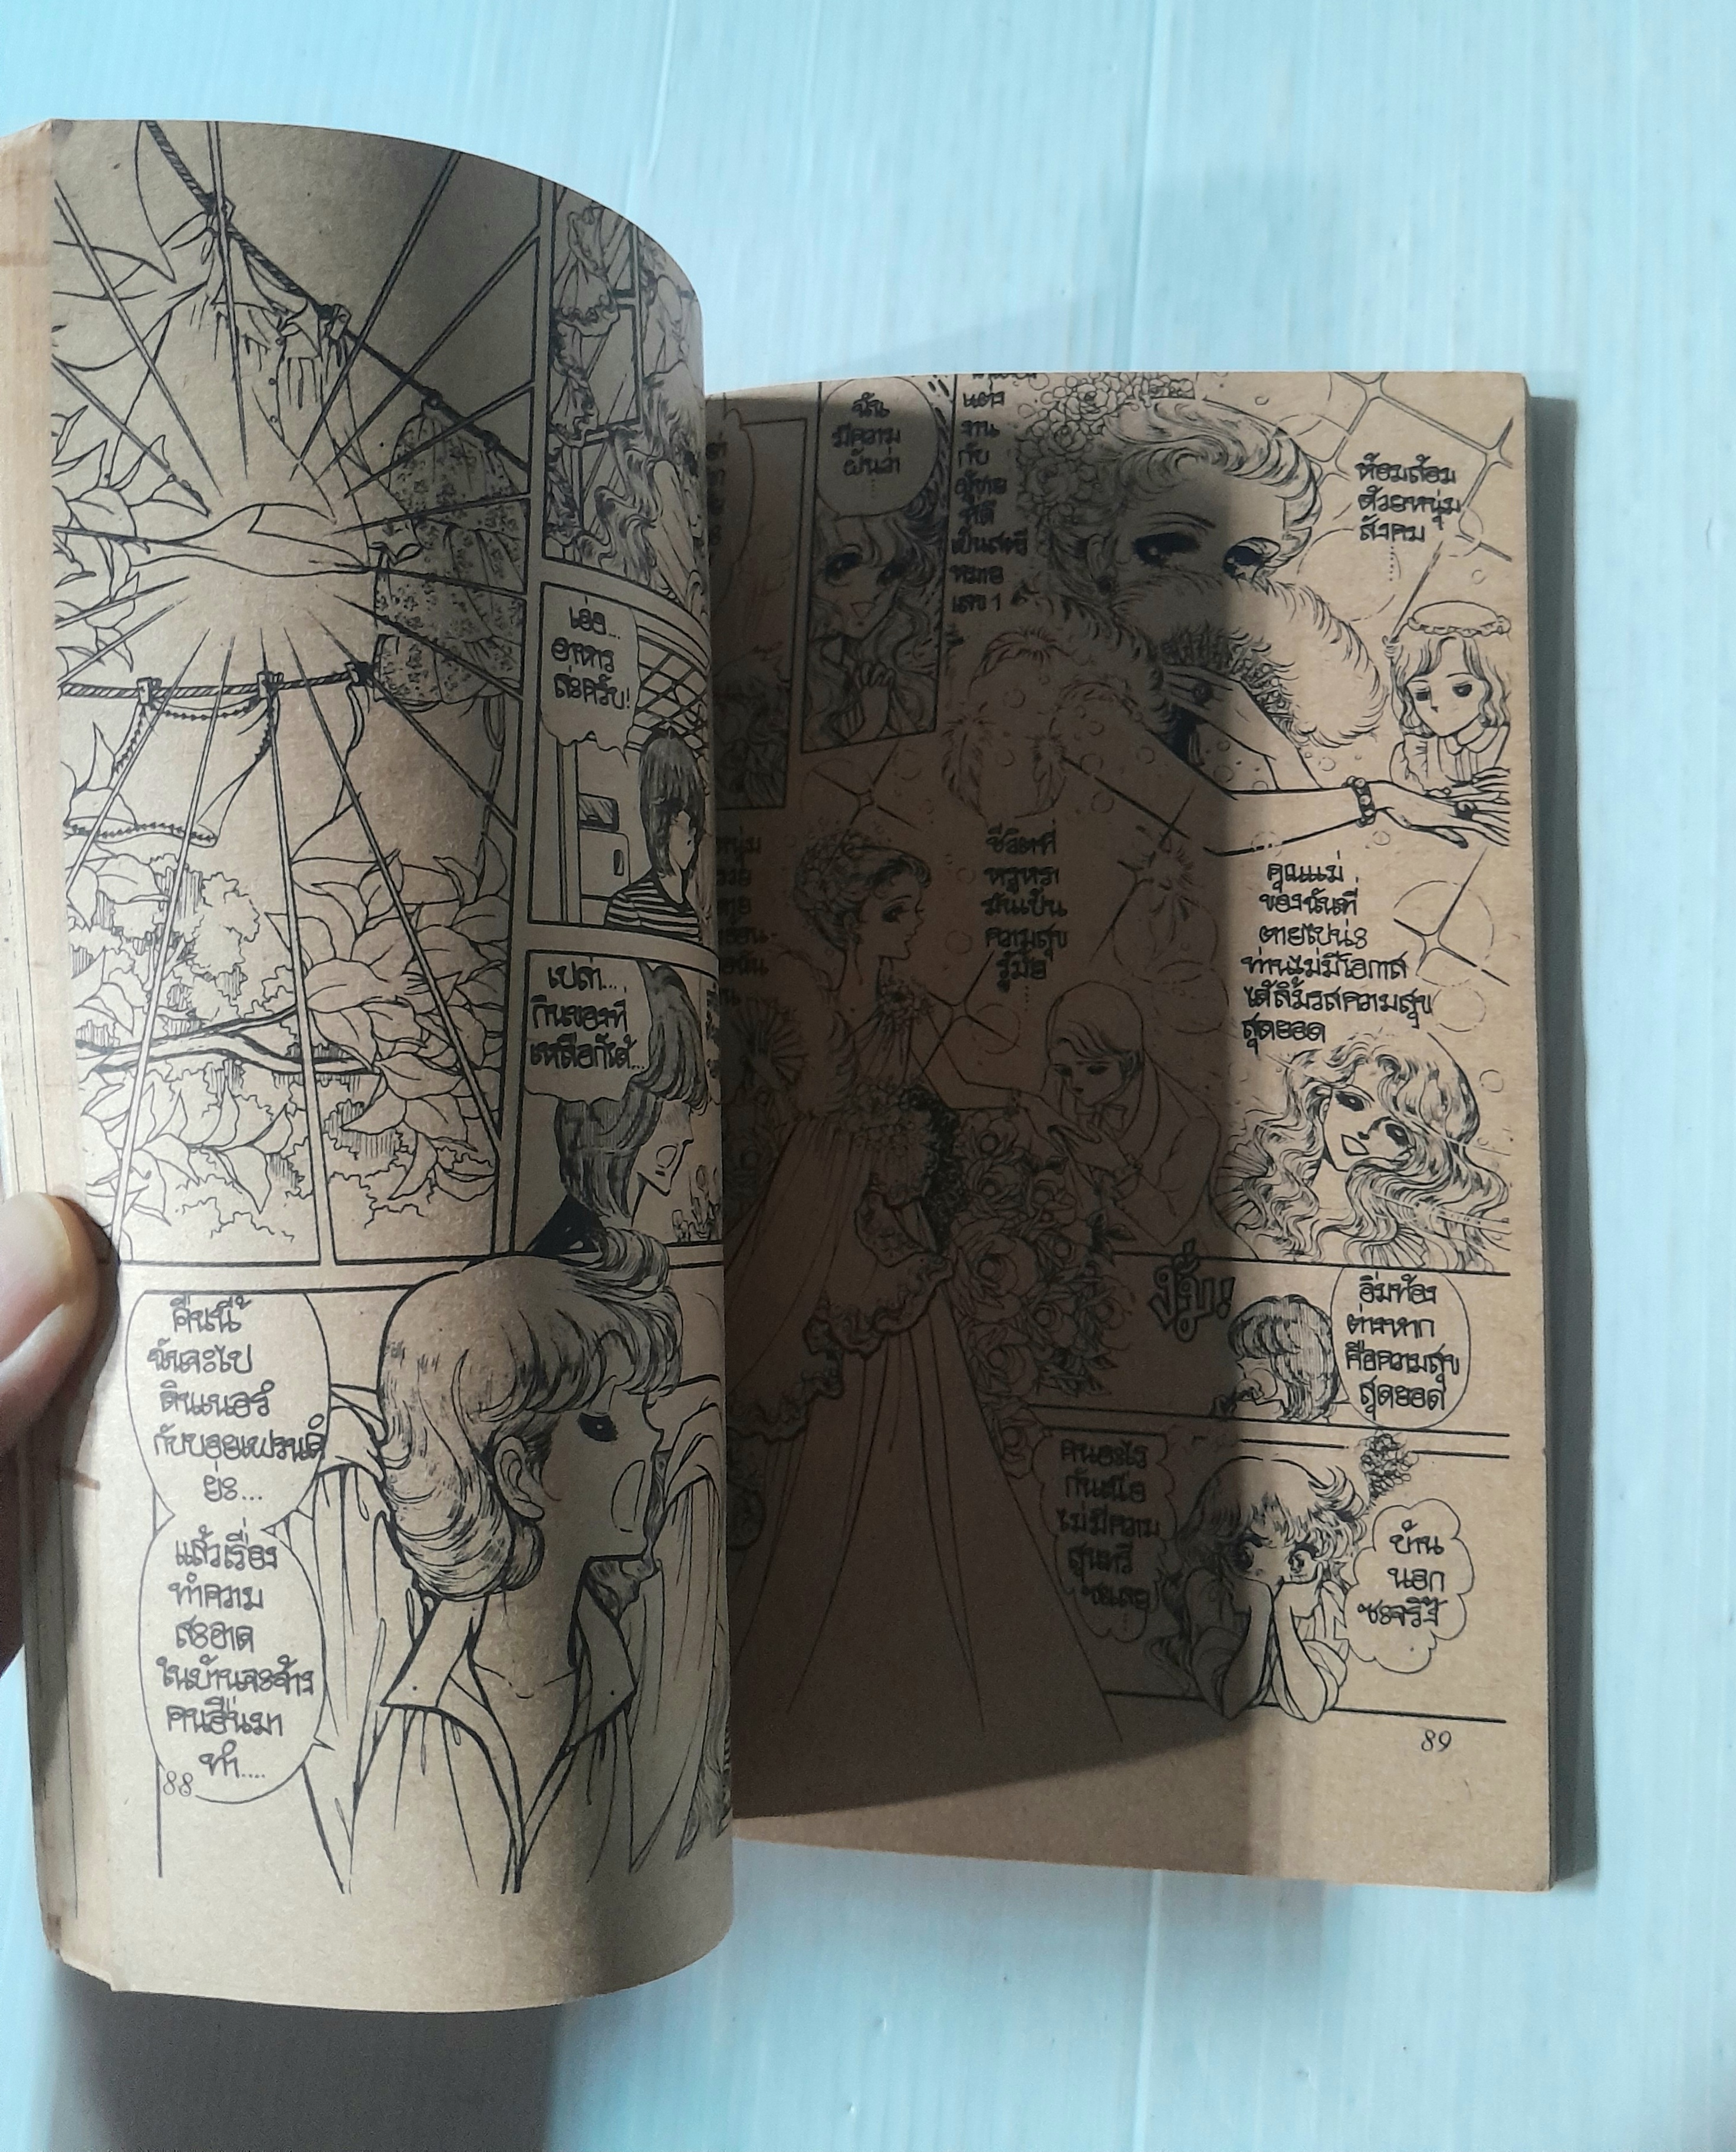 เอ่อ...
อาหาร
ล่ะครับ!
เปล่า...
กินของที่
เหลือก็ได้...
คืนนี้
ฉันจะไป
ดินเนอร์
กับบอยเฟรนด์
ย่ะ...
แล้วเรื่อง
ทำความ
สะอาด
ในบ้านจะจ้าง
คนอื่นมา
ทำ....
88
ฉัน
มีความ
ฝันว่า
แต่ง
งาน
กับ
ผู้ชาย
ที่ดี
เป็นสตรี
หมาย
เลข 1
ห้อมล้อม
ด้วยหนุ่ม
สังคม
ชีวิตที่
หรูหรา
มันเป็น
ความสุข
รู้มั้ย
คุณแม่
ของฉันที่
ตายไปน่ะ
ท่านไม่มีโอกาส
ได้ลิ้มรสความสุข
สุดยอด
อิ่มท้อง
ต่างหาก
คือความสุข
สุดยอด
คนอะไร
กันนี่
ไม่มีความ
สุนทรี
ซะเลย
บ้าน
นอก
ซะจริ๊ง
89